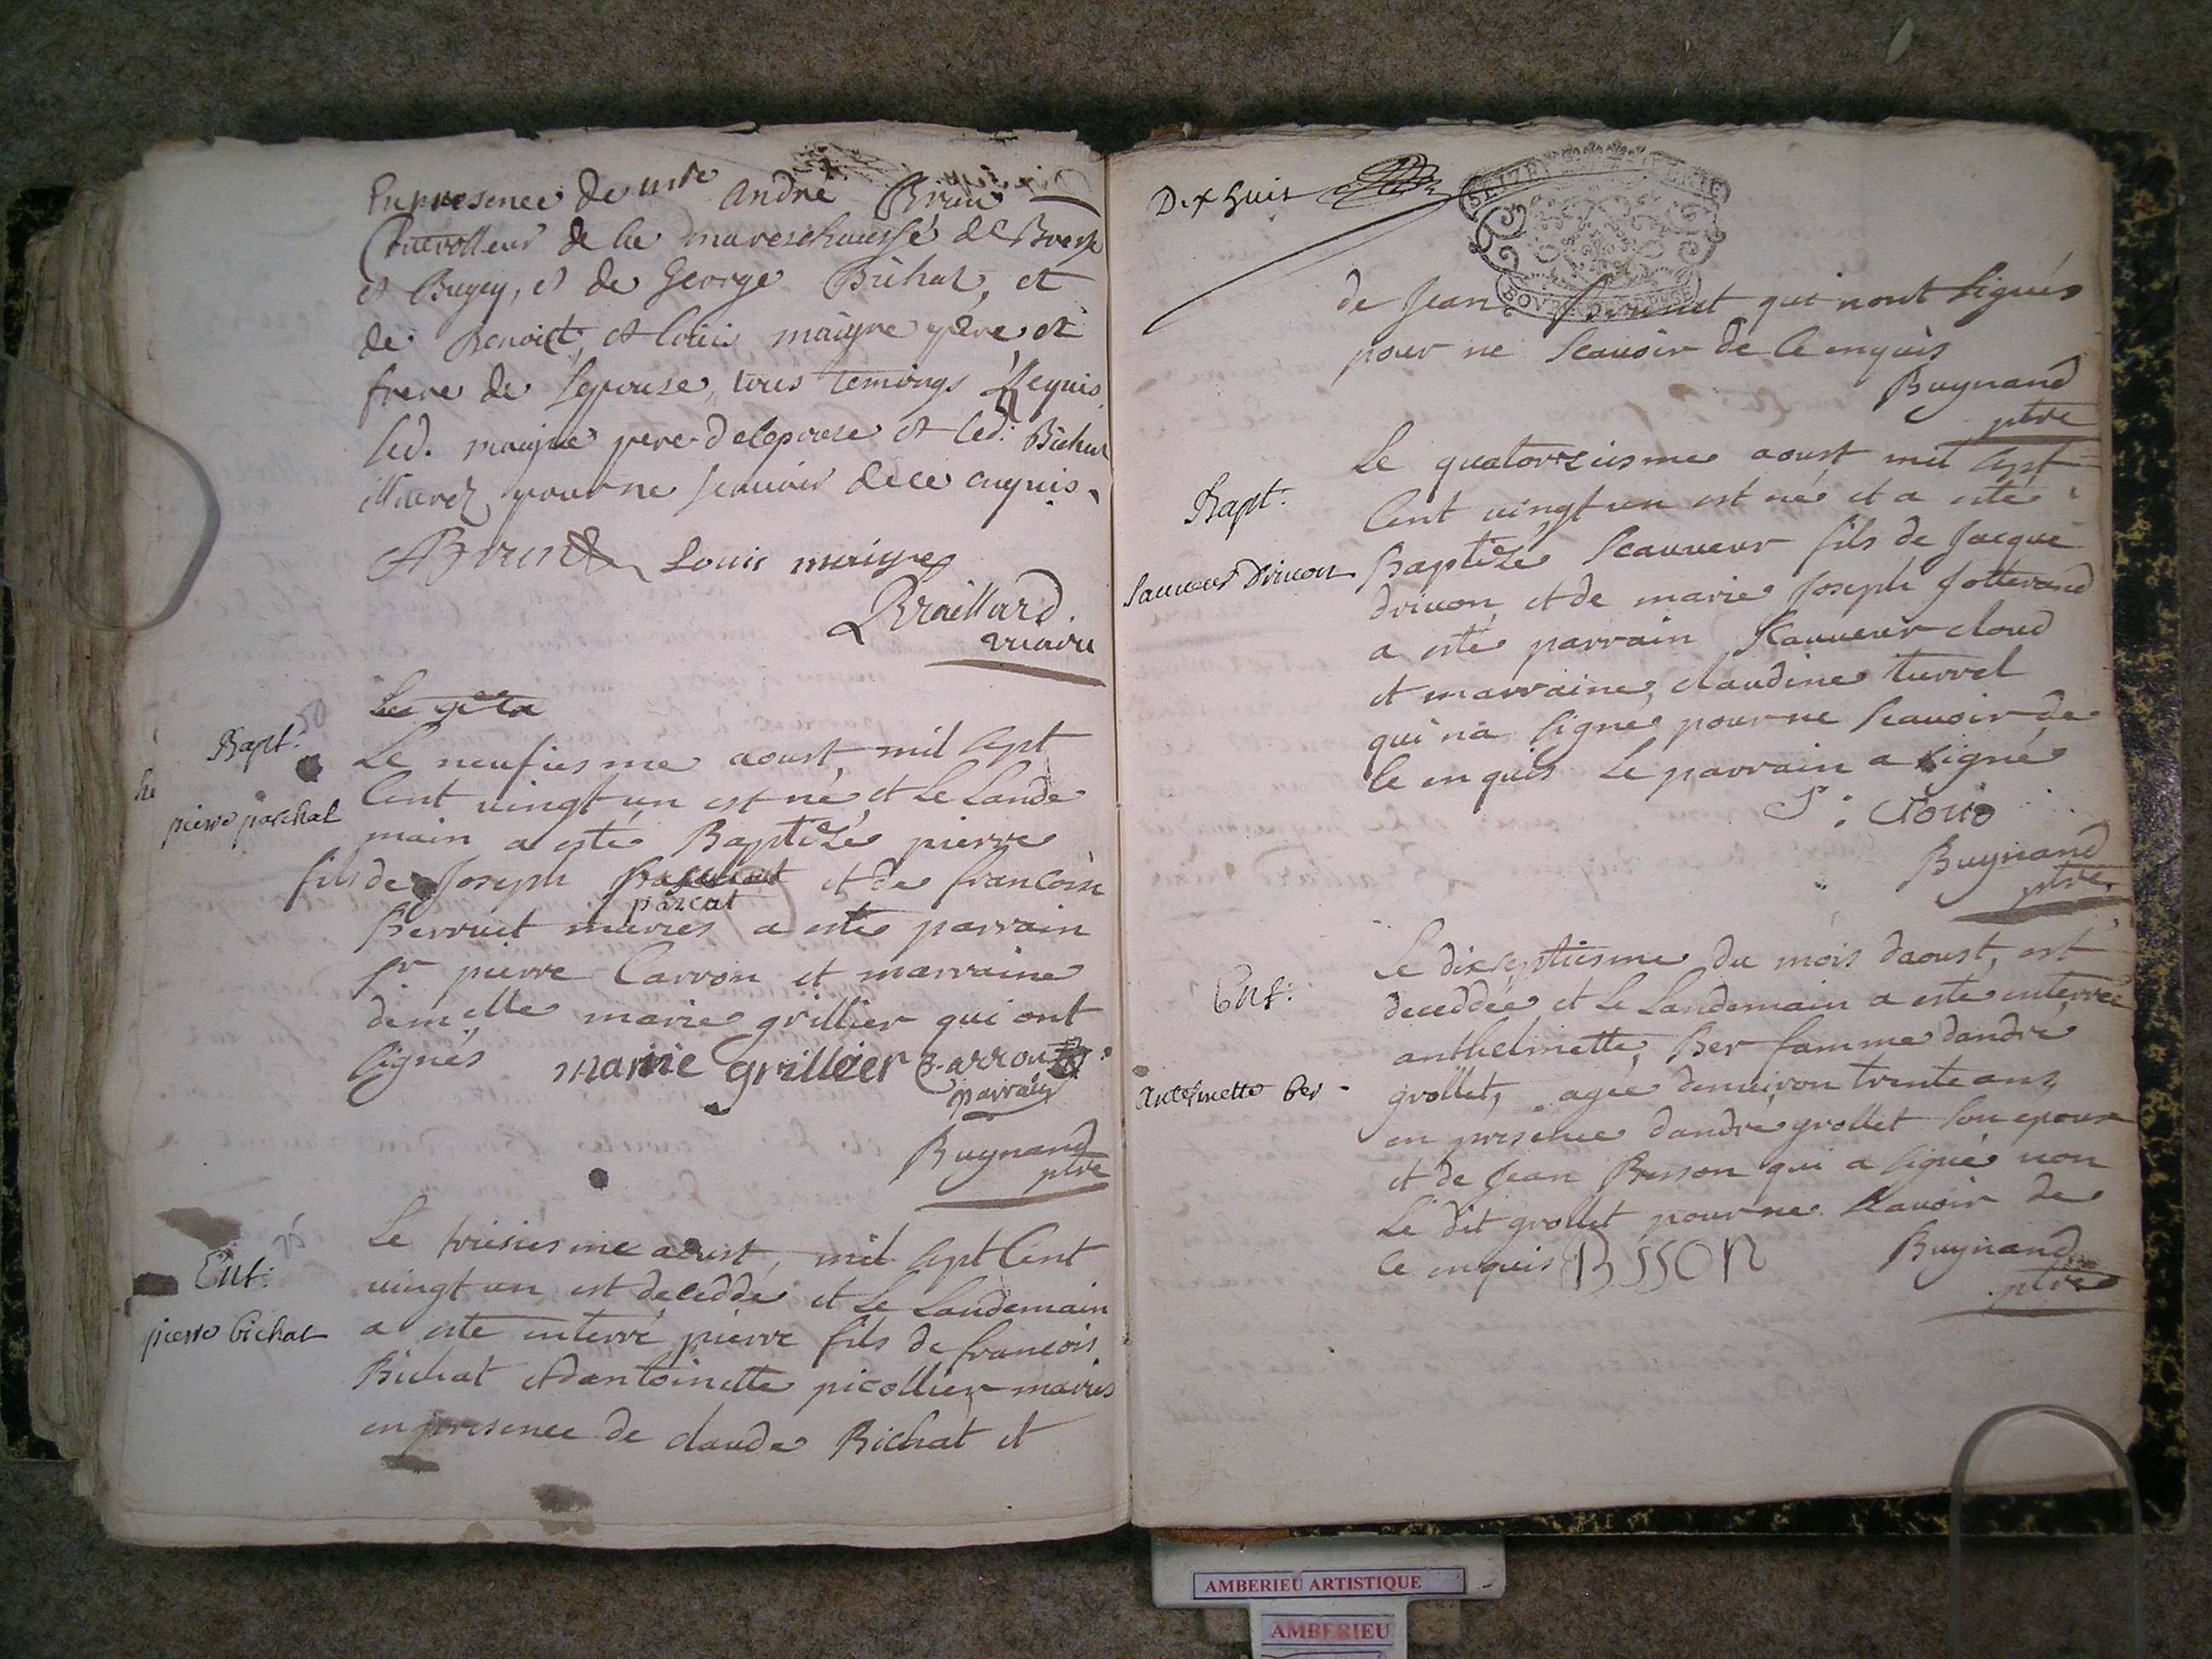 En presence de mre André Brun
Controlleur de la mareschaussé de Bresse
et Bugey, et de George Bichat, et
de Benoict, et Louis maigre pere et
frere de lepouse, tous temoings Requis
led. maigre pere delepouse et led. Bichat
illiterez pour ne scauoir de ce enquis.
ABrun Louis maigre
Braillard
vicaire
Bapt:
pierre paschal
Le neufiesme aoust, mil sept
Cent uingt un est né et Le Lande
main a esté Baptizé pierre
fils de Joseph et de francoise
pascat
Berruiet mariés a esté parrain
sr. pierre Carron et marraine
demelle marie grillier qui ont
signés marie grillier Carron
parrain
Buynand
ptre
Ent:
pierre bichat
Le triesiesme aoust, mil sept Cent
uingt un est deceddé et Le Landemain
a esté enterré pierre fils de francois
Bichat et dantoinette picollier mariés
en presence de claude Bichat et
Dix huit
SEIZE
BOVRG EN BRESSE
de Jean qui nont signés
pour ne scauoir de ce enquis
Buynand
ptre
Bapt:
Sauueur Driuon
Le quatorziesme aoust mil sept
Cent uingt un est né et a esté
Baptizé Scauueur fils de Jacque
driuon et de marie Joseph Jotterand
a esté parrain Scauueur cloud
et marraine, claudine turrel
qui na signé pour ne scauoir de
ce enquis Le parrain a signé
S: Cloud
Buynand
ptre
Ent:
Antelmette ber
Le dixseptiesme du mois daoust, est
deceddée et Le Landemain a esté enterrée
anthelmette, Ber famme dandré
grollet, agée denuiron trente ans,
en presence dandré grollet son epoux
et de Jean Busson qui a signé non
Le dit grollet pour ne scauoir de
ce enquis BSSON
Buynand
ptre
AMBERIEU ARTISTIQUE
AMBERIEU